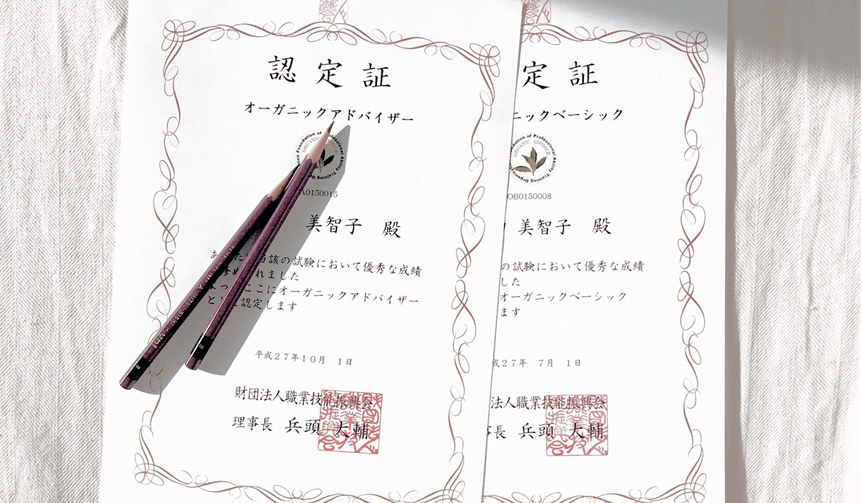 認定証
オーガニックアドバイザー
美智子 殿
の試験において優秀な成績
れました
ここにオーガニックアドバイザー
認定します
平成27年10月 1日
財団法人職業技能振興会
理事長 兵頭 大輔
定証
ニックベーシック
Foundation of Professional Ability
OB0150008
美智子 殿
の試験において優秀な成績
した
オーガニックベーシック
ます
27年 7月 1日
法人職業技能振興会
長 兵頭 大輔